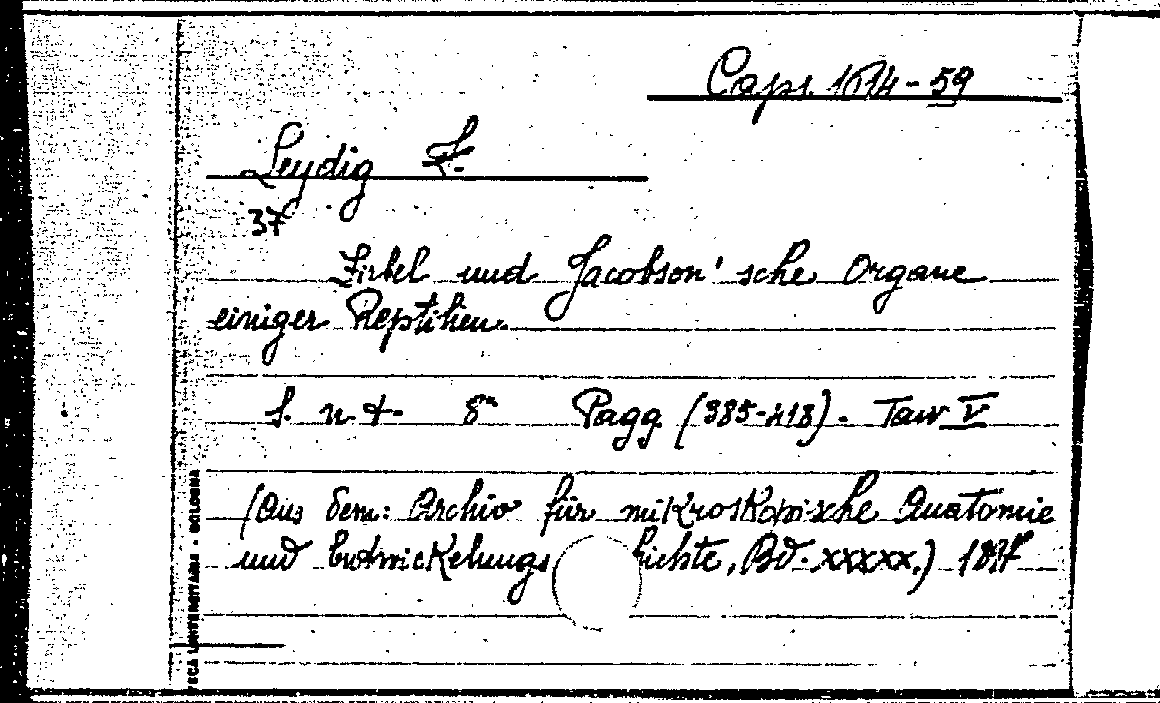 Caps. 1614-59
Leydig F.
37
Zirbel und Jacobson'sche Organe
einiger Reptilien.
S. n. t. 8° Pagg (385-418). Tav V
(Aus dem: Archiv für mikroskopische Anatomie
und Entwickelungs hichte, Bd. xxxxx.)
TECA UNIVERSITARIA - BOLOGNA